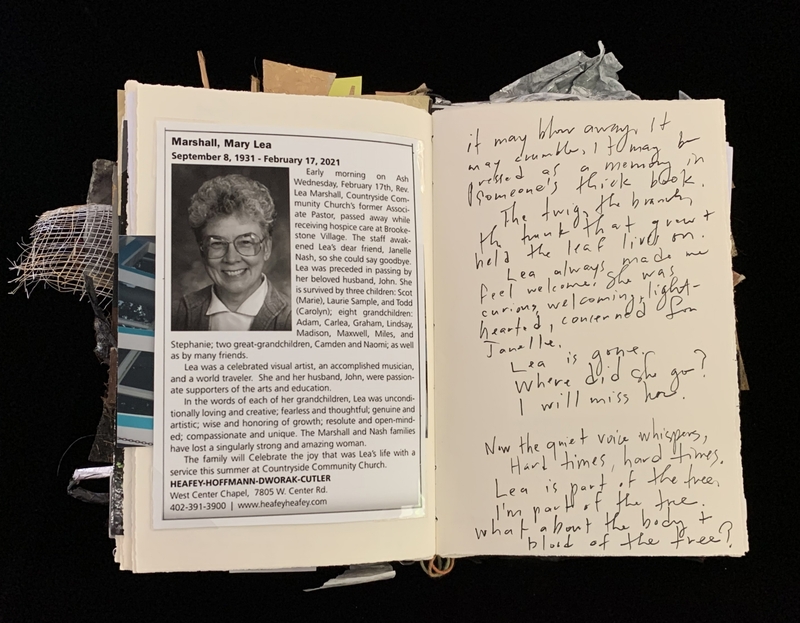 Marshall, Mary Lea
September 8, 1931 - February 17, 2021
Early morning on Ash
Wednesday, February 17th, Rev.
Lea Marshall, Countryside Com-
munity Church's former Associ-
ate Pastor, passed away while
receiving hospice care at Brooke-
stone Village. The staff awak-
ened Lea's dear friend, Janelle
Nash, so she could say goodbye.
Lea was preceded in passing by
her beloved husband, John. She
is survived by three children: Scot
(Marie), Laurie Sample, and Todd
(Carolyn); eight grandchildren:
Adam, Carlea, Graham, Lindsay,
Madison, Maxwell, Miles, and
Stephanie; two great-grandchildren, Camden and Naomi; as well
as by many friends.
Lea was a celebrated visual artist, an accomplished musician,
and a world traveler. She and her husband, John, were passion-
ate supporters of the arts and education.
In the words of each of her grandchildren, Lea was uncondi-
tionally loving and creative; fearless and thoughtful; genuine and
artistic; wise and honoring of growth; resolute and open-mind-
ed; compassionate and unique. The Marshall and Nash families
have lost a singularly strong and amazing woman.
The family will Celebrate the joy that was Lea's life with a
service this summer at Countryside Community Church.
HEAFEY-HOFFMANN-DWORAK-CUTLER
West Center Chapel, 7805 W. Center Rd.
402-391-3900 | www.heafeyheafey.com
it may blow away, It
may crumble, It may be
pressed as a memory in
someone's thick book.
The twig, the branch,
the trunk that grew +
held the leaf lives on.
Lea always made me
feel welcome. She was
curious, welcoming, light-
hearted, concerned for
Janelle.
Lea is gone.
Where did she go?
I will miss her.
Now the quiet voice whispers,
Hard times, hard times.
Lea is part of the tree,
I'm part of the tree.
What about the body +
blood of the tree?